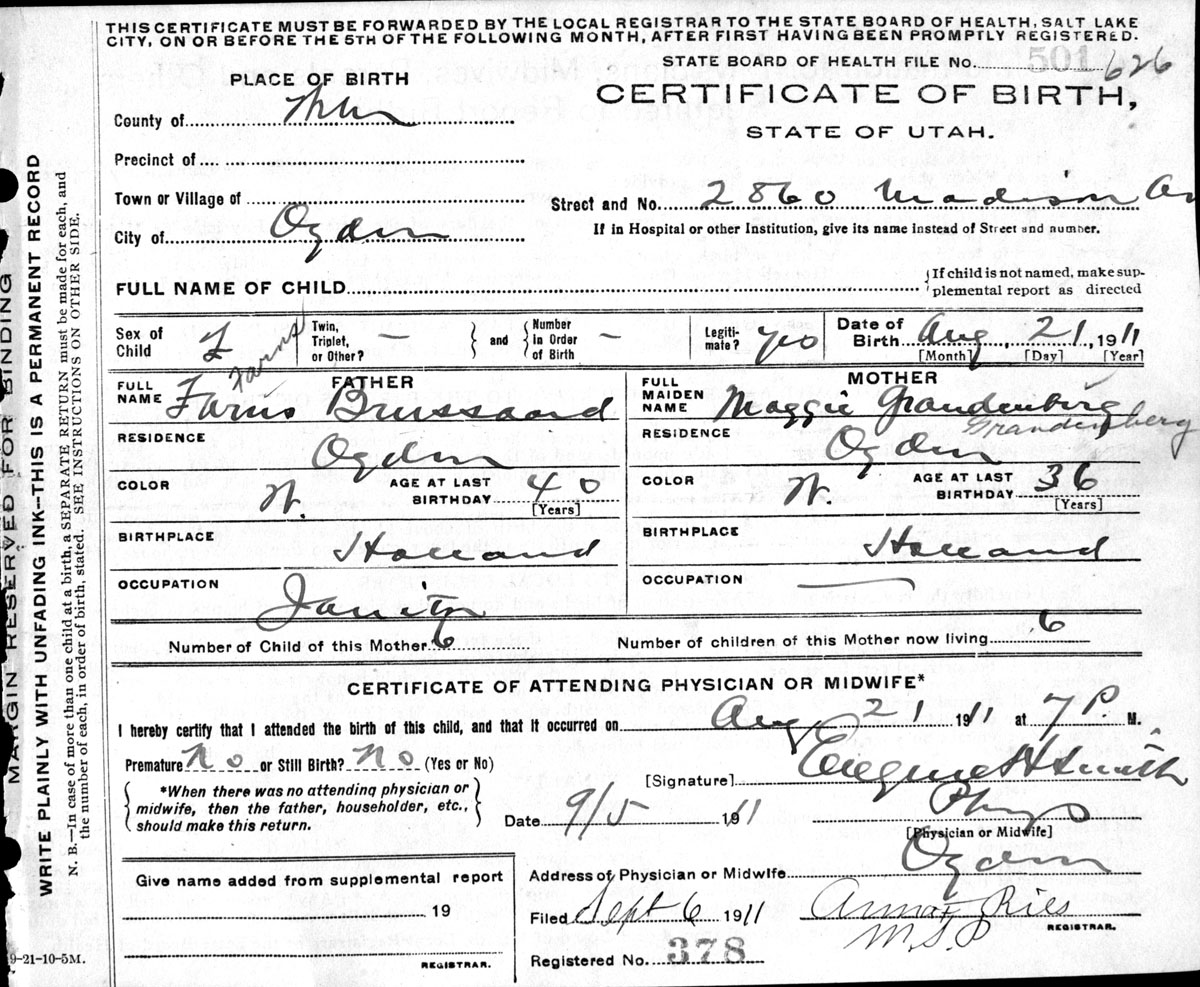 THIS CERTIFICATE MUST BE FORWARDED BY THE LOCAL REGISTRAR TO THE STATE BOARD OF HEALTH, SALT LAKE
CITY, ON OR BEFORE THE 5TH OF THE FOLLOWING MONTH, AFTER FIRST HAVING BEEN PROMPTLY REGISTERED.
STATE BOARD OF HEALTH FILE No. 501 626
PLACE OF BIRTH
CERTIFICATE OF BIRTH,
STATE OF UTAH.
County of
Precinct of
Town or Village of
Street and No. 2860 Madison Av
City of Ogden
If in Hospital or other Institution, give its name instead of Street and number.
FULL NAME OF CHILD
If child is not named, make supplemental report as directed
Sex of Child F
Twin, Triplet, or Other? —
and
Number in Order of Birth —
Legitimate? yes
Date of Birth Aug 21, 1911
[Month] [Day] [Year]
FATHER
FULL NAME Farns Brussaard
Farns
RESIDENCE Ogden
COLOR W. AGE AT LAST BIRTHDAY 40
[Years]
BIRTHPLACE Holland
OCCUPATION Janitor
MOTHER
FULL MAIDEN NAME Maggie Grandenberg
Grandenberg
RESIDENCE Ogden
COLOR W. AGE AT LAST BIRTHDAY 36
[Years]
BIRTHPLACE Holland
OCCUPATION —
Number of Child of this Mother 6
Number of children of this Mother now living 6
CERTIFICATE OF ATTENDING PHYSICIAN OR MIDWIFE*
I hereby certify that I attended the birth of this child, and that it occurred on Aug 21 1911 at 7 P. M.
Premature No or Still Birth? No (Yes or No)
[Signature] Eugene H Smith
*When there was no attending physician or
midwife, then the father, householder, etc.,
should make this return.
Date 9/5 1911
Phys
[Physician or Midwife]
Address of Physician or Midwife Ogden
Give name added from supplemental report
19
REGISTRAR.
Filed Sept 6 1911 Anna F Ries
REGISTRAR.
Registered No. 378
9-21-10-5M.
MARGIN RESERVED FOR BINDING
WRITE PLAINLY WITH UNFADING INK—THIS IS A PERMANENT RECORD
N. B.—In case of more than one child at a birth, a SEPARATE RETURN must be made for each, and
the number of each, in order of birth, stated. SEE INSTRUCTIONS ON OTHER SIDE.